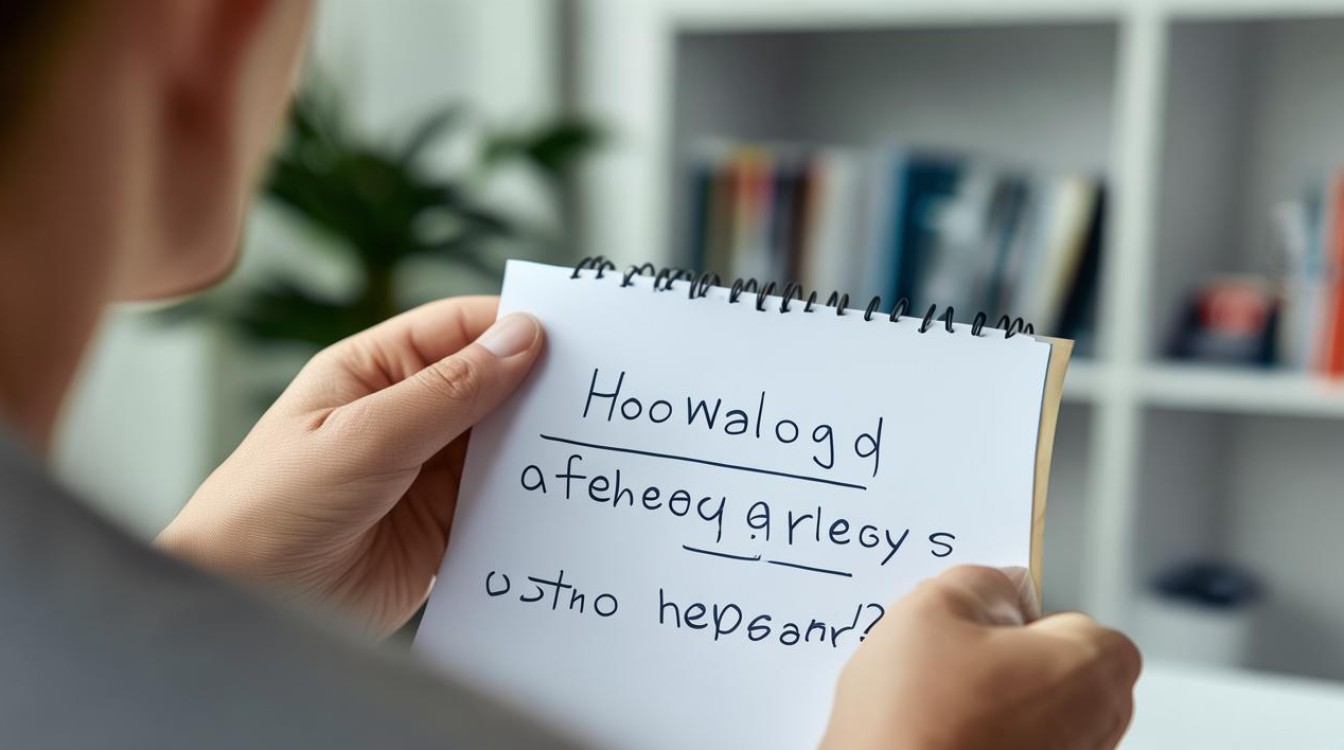 Hoowalogd
afeheoy arleoys
ustno hepsanr!?